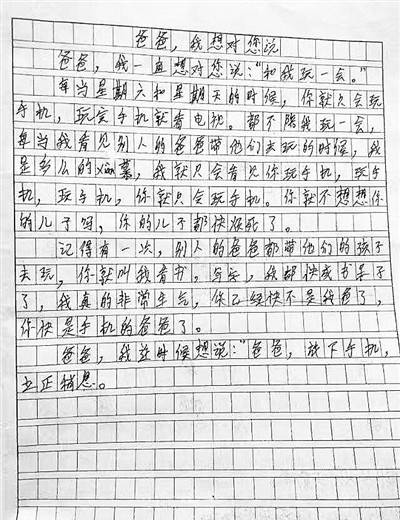 爸爸,我想对您说
爸爸,我一直想对您说:“和我玩一会。”
每当星期六和星期天的时候,你就只会玩
手机,玩完手机就看电视。都不陪我玩一会,
每当我看见别人的爸爸带他们去玩的时候,我
是多么的xian慕,我就只会看见你玩手机,玩手
机,玩手机,你就只会玩手机。你就不想想你
的儿子吗,你的儿子都快死了。
记得有一次,别人的爸爸都带他们的孩子
去玩,你就叫我看书,写字,我都快成书呆子
了,我真的非常生气,你已经快不是我爸了,
你快是手机的爸爸了。
爸爸,我这时候想说:“爸爸,放下手机,
立正稍息。